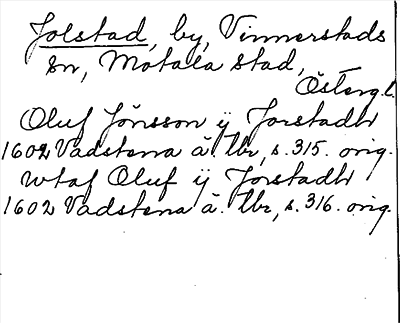 Jolstad, by, Vinnerstads
sn, Motala stad,
Östergl.
Oluf Jönsson ÿ Jorstadh
1602 Vadstena ä. tbr, s. 315. orig.
wtaf Oluf ÿ Jorstadh
1602 Vadstena ä. tbr, s. 316. orig.